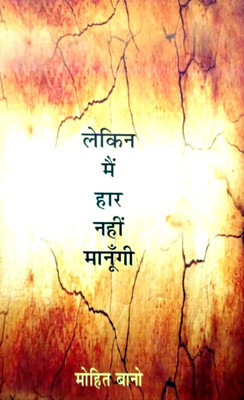 लेकिन
मैं
हार
नहीं
मानूँगी
मोहित बानो